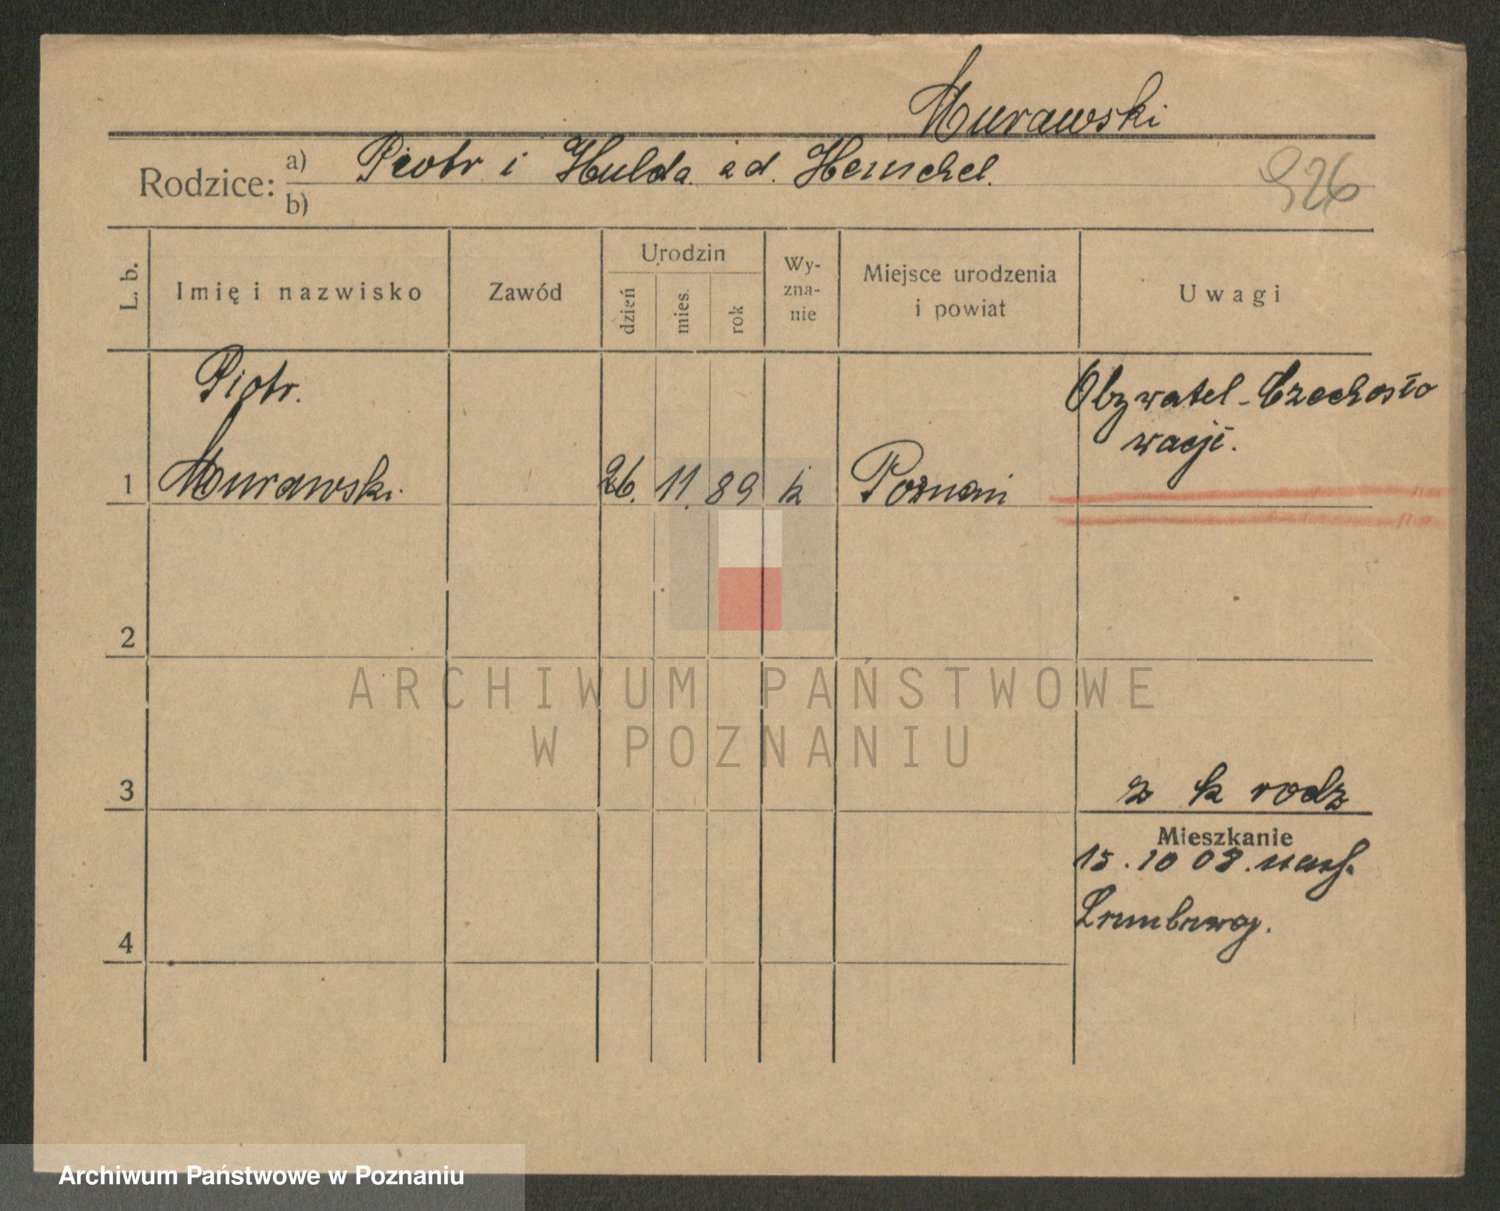 Murawski
Rodzice: a) Piotr i Hulda zd. Henschel.
b)
926
L. b.
Imię i nazwisko
Zawód
Urodzin
dzień
mies.
rok
Wy-
zna-
nie
Miejsce urodzenia
i powiat
Uwagi
Piotr.
1 Murawski. 26. 11. 89 k Poznań
Obywatel-Czechosło
wacji.
2
3
z k rodz
Mieszkanie
15.10 08. nach
4
ARCHIWUM PAŃSTWOWE
W POZNANIU
Archiwum Państwowe w Poznaniu